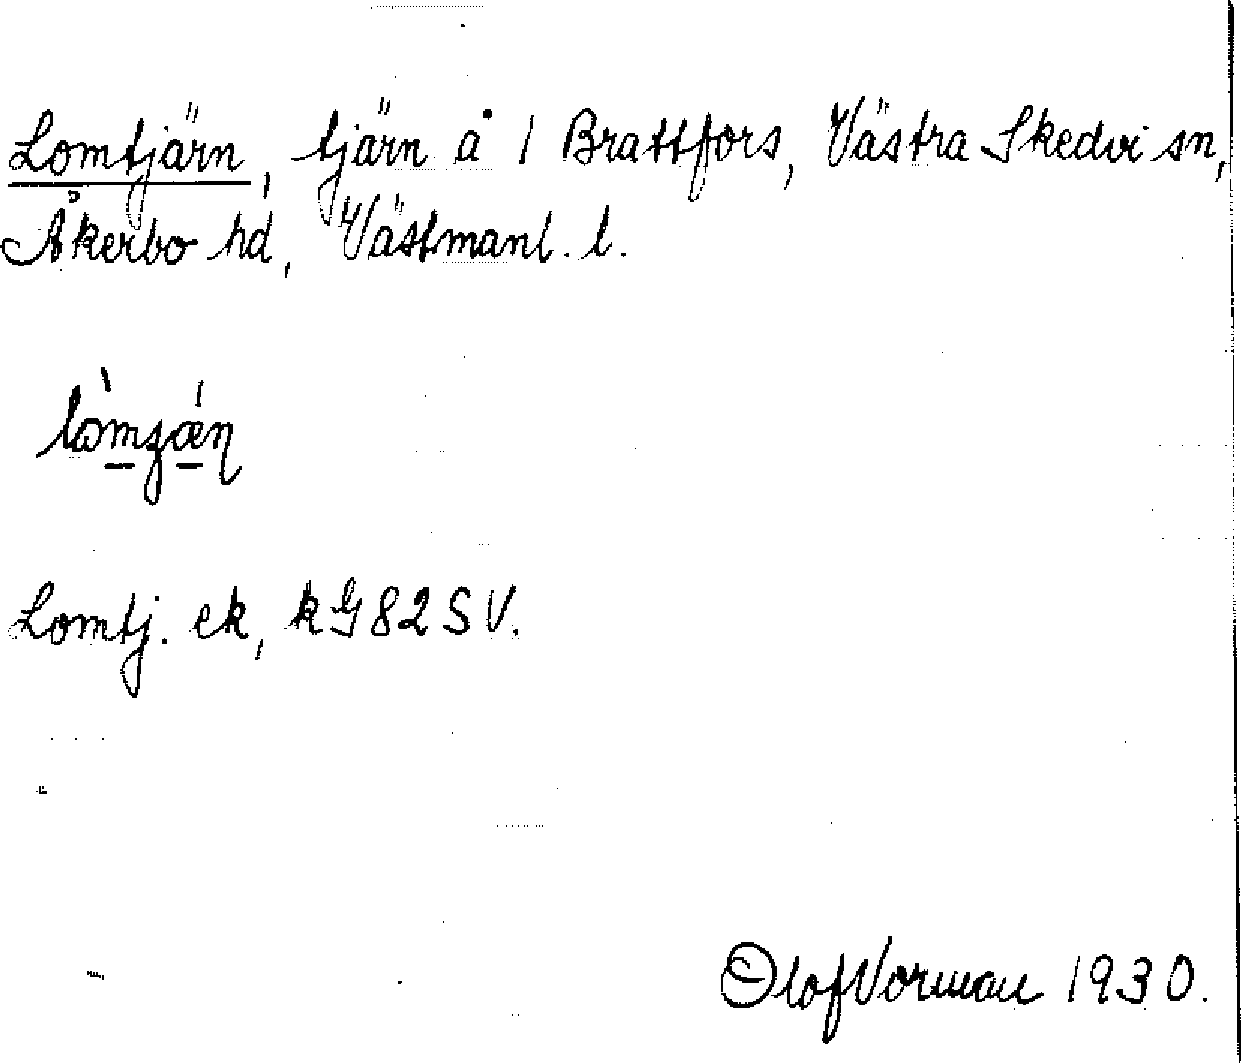 Lomtjärn, tjärn å 1 Brattfors, Västra Skedvi sn,
Åkerbo hd, Västmanl. l.
Lomtj. ek, kG82SV.
Olof Vorman 1930.